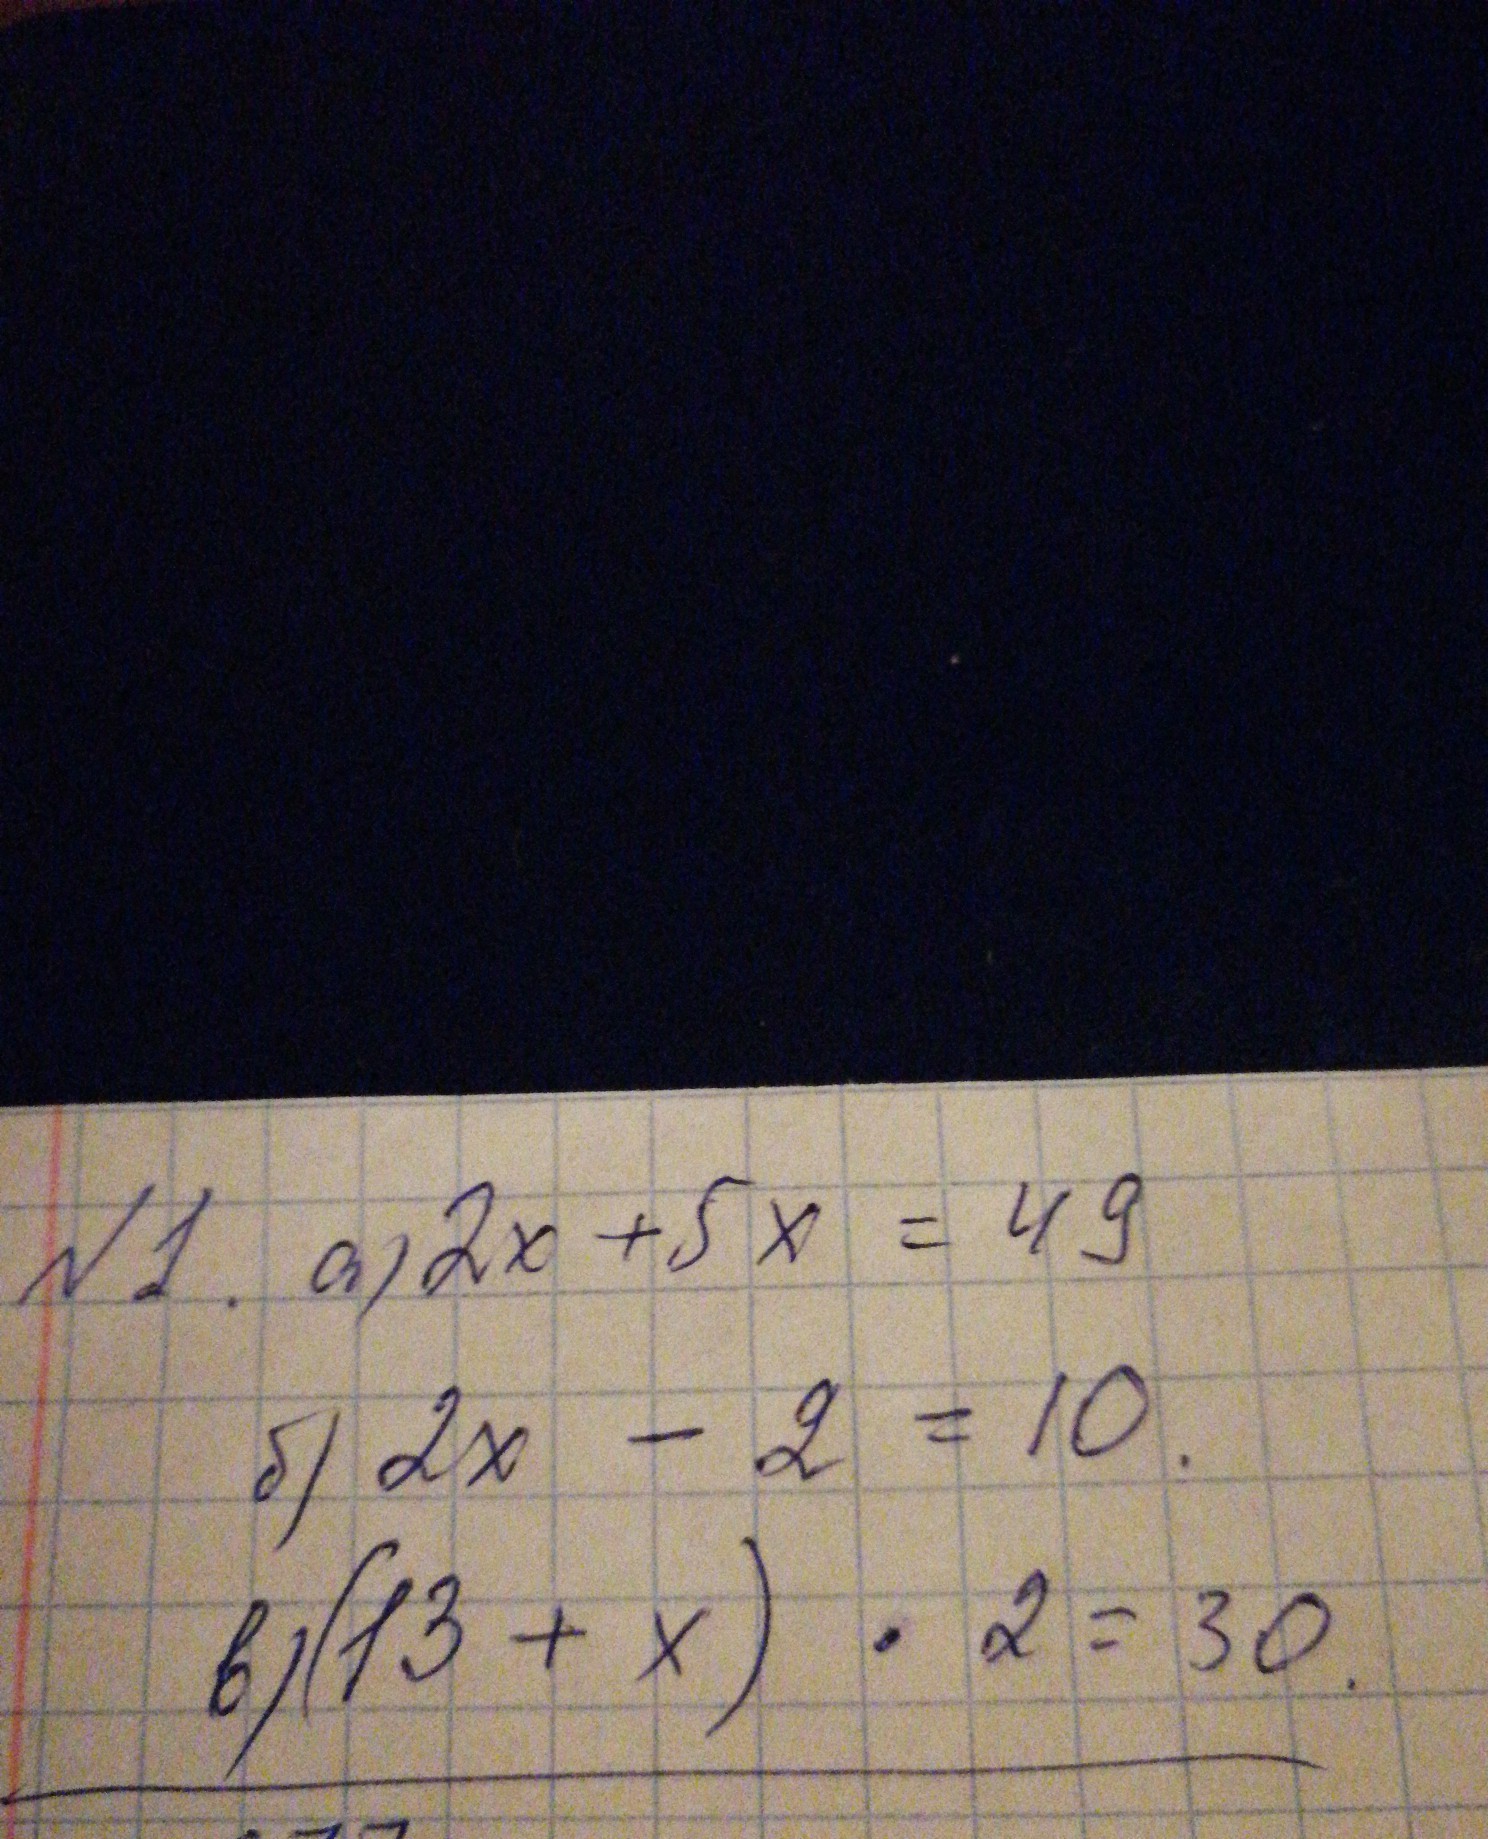 №1. а) 2x + 5x = 49
б) 2x - 2 = 10.
в) (13 + x) · 2 = 30.